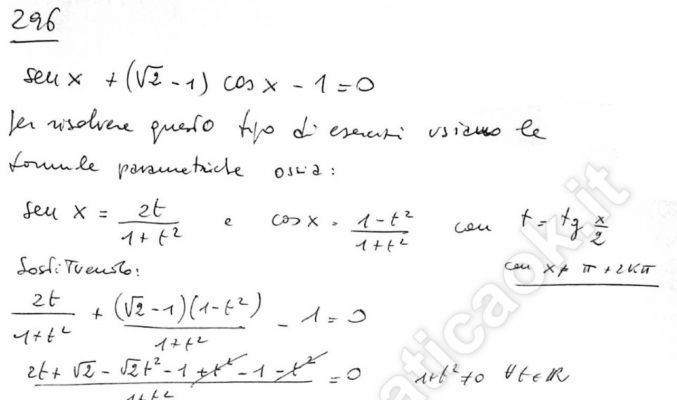 296
sen x + (√2 - 1) cos x - 1 = 0
per risolvere questo tipo di esercizi usiamo le
formule parametriche ossia:
sen x = 2t/(1+t²) e cos x = (1-t²)/(1+t²) con t = tg x/2
Sostituendo: con x ≠ π + 2kπ
2t/(1+t²) + (√2-1)(1-t²)/(1+t²) - 1 = 0
(2t + √2 - √2t² - 1 + t² - 1 - t²)/(1+t²) = 0 1+t² ≠ 0 ∀t∈ℝ
aticaok.it